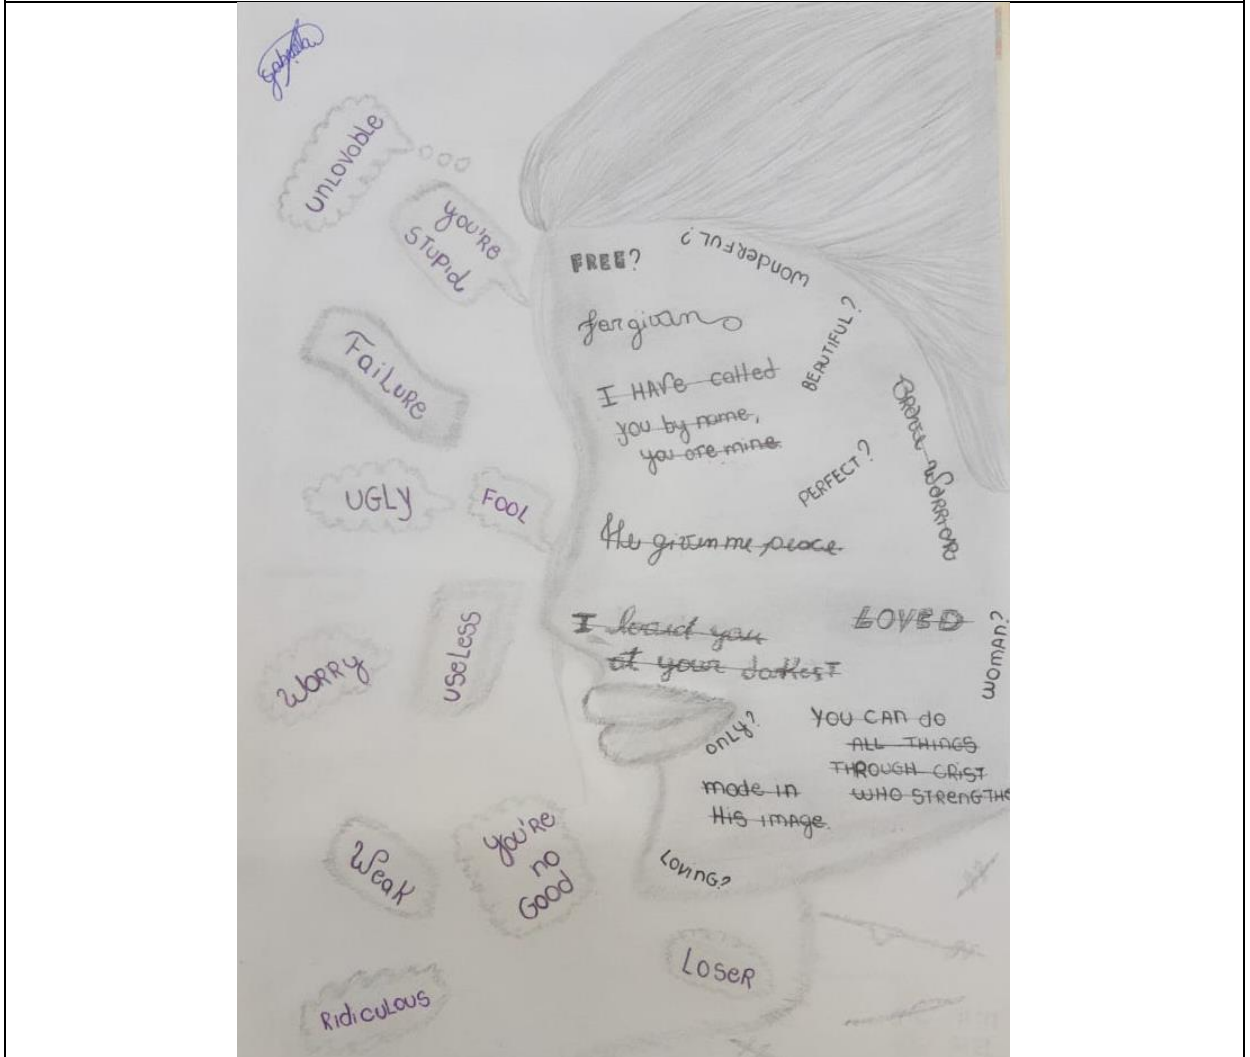 Gabriela
UNLOVABLE
YOU'RE
STUPID
FAILURE
UGLY
FOOL
WORRY
USELESS
WEAK
YOU'RE
NO
GOOD
LOSER
RIDICULOUS
FREE?
WONDERFUL?
forgiven
BEAUTIFUL?
I HAVE called
you by name,
you are mine.
BRAVE WARRIOR
PERFECT?
He given me peace
I loved you
at your darkest
LOVED
WOMAN?
ONLY?
YOU CAN do
ALL THINGS
THROUGH CRIST
WHO STRENGTHE
made in
His image.
LOVING?